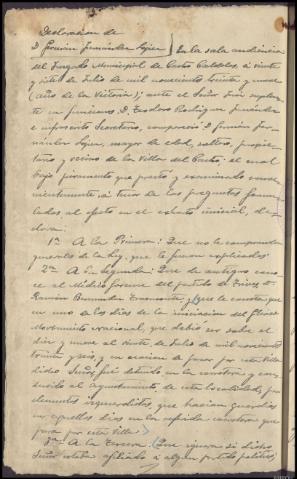 Declaracion de
D. Fermín Fernández López } En la sala audiencia
del Juzgado Municipal de Castro Caldelas á veinte
y siete de Julio de mil novecientos treinta y nueve
(Año de la Victoria); ante el Señor Juez suplente
en funciones D. Teodoro Rodriguez Fernández
é infrascrito Secretario, compareció D. Fermín Fer-
nández López, mayor de edad, soltero, propie-
tario y vecino de la Villa del Castro; el cual
bajo juramento que prestó y examinado conve-
nientemente á tenor de las preguntas formu-
ladas al efecto en el exhorto inicial, de-
clara:
1ª A la Primera: Que no le comprenden
generales de la Ley, que le fueron explicadas
2ª A la Segunda: Que de antiguo cono-
ce al Médico forense del partido de Trives D.
Ramón y que le consta que
en uno de los días de la iniciación del Glorioso
Movimiento Nacional, que debió ser sobre el
diez y nueve al veinte de Julio de mil novecientos
treinta y seis, y en ocasion de pasar por esta Villa
dicho Señor, fué detenido en la carretera y con-
ducido al Ayuntamiento de esta localidad, por
elementos izquierdistas, que hacían guardias
en aquellos días en la referida carretera que
pasa por esta Villa
3ª A la Tercera: Que ignora si dicho
Señor estaba afiliado á algún partido político,